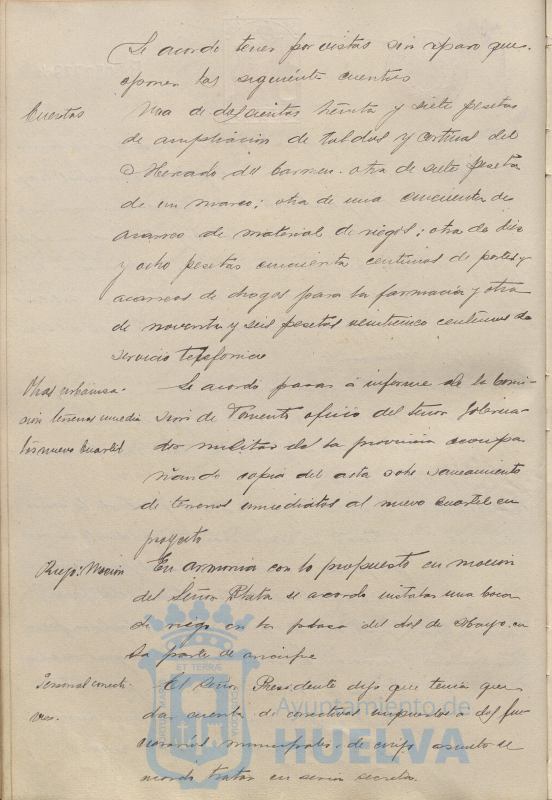 Se acordó tener por vistas sin reparo que
oponer las siguiente cuentas
Cuentas
Una de doscientas treinta y siete pesetas
de ampliación de toldos y cortinas del
Mercado del Carmen. otra de siete pesetas
de un marco; otra de una cincuenta de
acarreo de material de riego; otra de diez
y ocho pesetas cincuenta centimos de portes y
acarreos de drogas para la farmacia y otra
de noventa y seis pesetas veinticinco centimos de
servicio telefonico
Obras urbaniza-
ción terrenos inmedia
tos nuevo Cuartel
Se acordó pasar á informe de la Comi-
sion de Fomento oficio del Señor Goberna-
dor militar de la provincia acompa
ñando copia del acta sobre saneamiento
de terrenos inmediatos al nuevo cuartel en
proyecto
Riego: Moción
En armonia con lo propuesto en moción
del Señor Plata se acordó instalar una boca
de riego en la plaza del dos de Mayo, en
la parte de arriba
Personal correcti-
vos.
El Señor Presidente dijo que tenía que
dar cuenta de correctivos impuestos a dos fun
cionarios municipales, de cuyo asunto se
acordó tratar en sesion secreta.
Ayuntamiento de
HUELVA